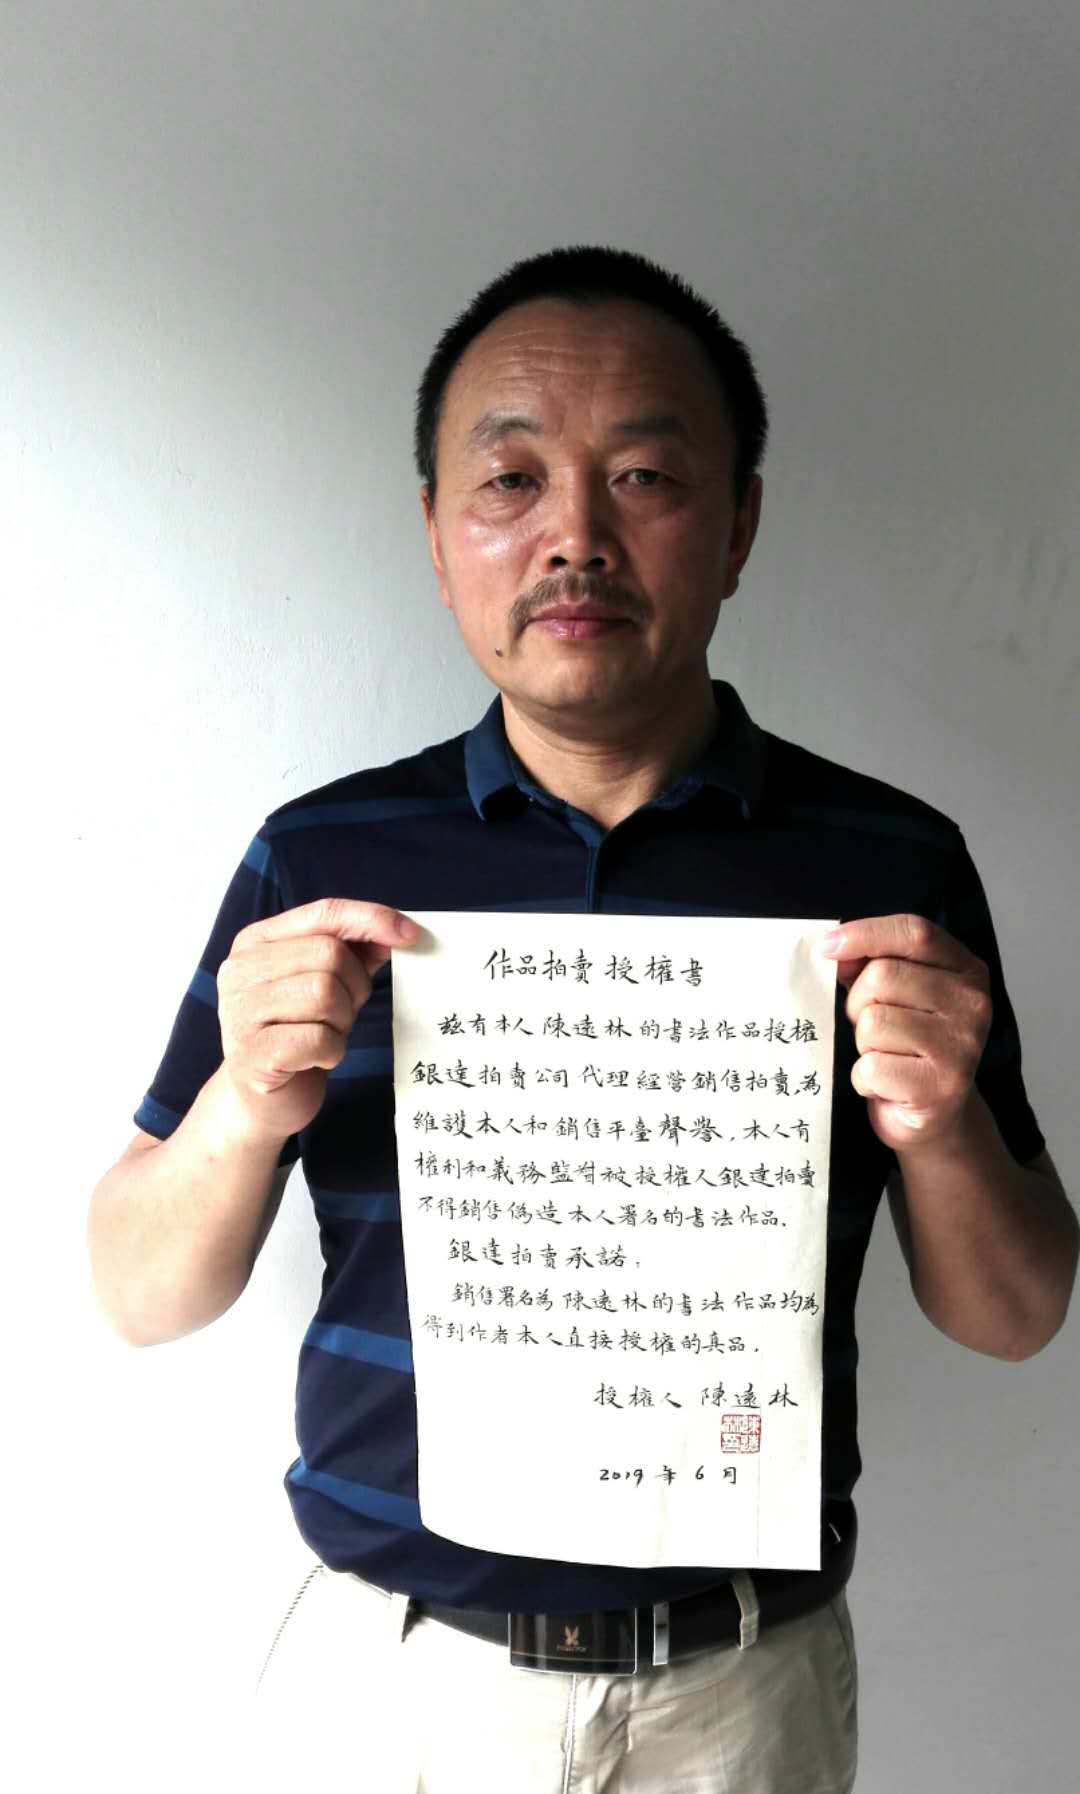 作品拍賣授權書
茲有本人陳遠林的書法作品授權
銀達拍賣公司代理經營銷售拍賣,為
維護本人和銷售平臺聲譽,本人有
權利和義務監督被授權人銀達拍賣
不得銷售偽造本人署名的書法作品.
銀達拍賣承諾:
銷售署名為陳遠林的書法作品均為
得到作者本人直接授權的真品.
授權人 陳遠林
2019年6月